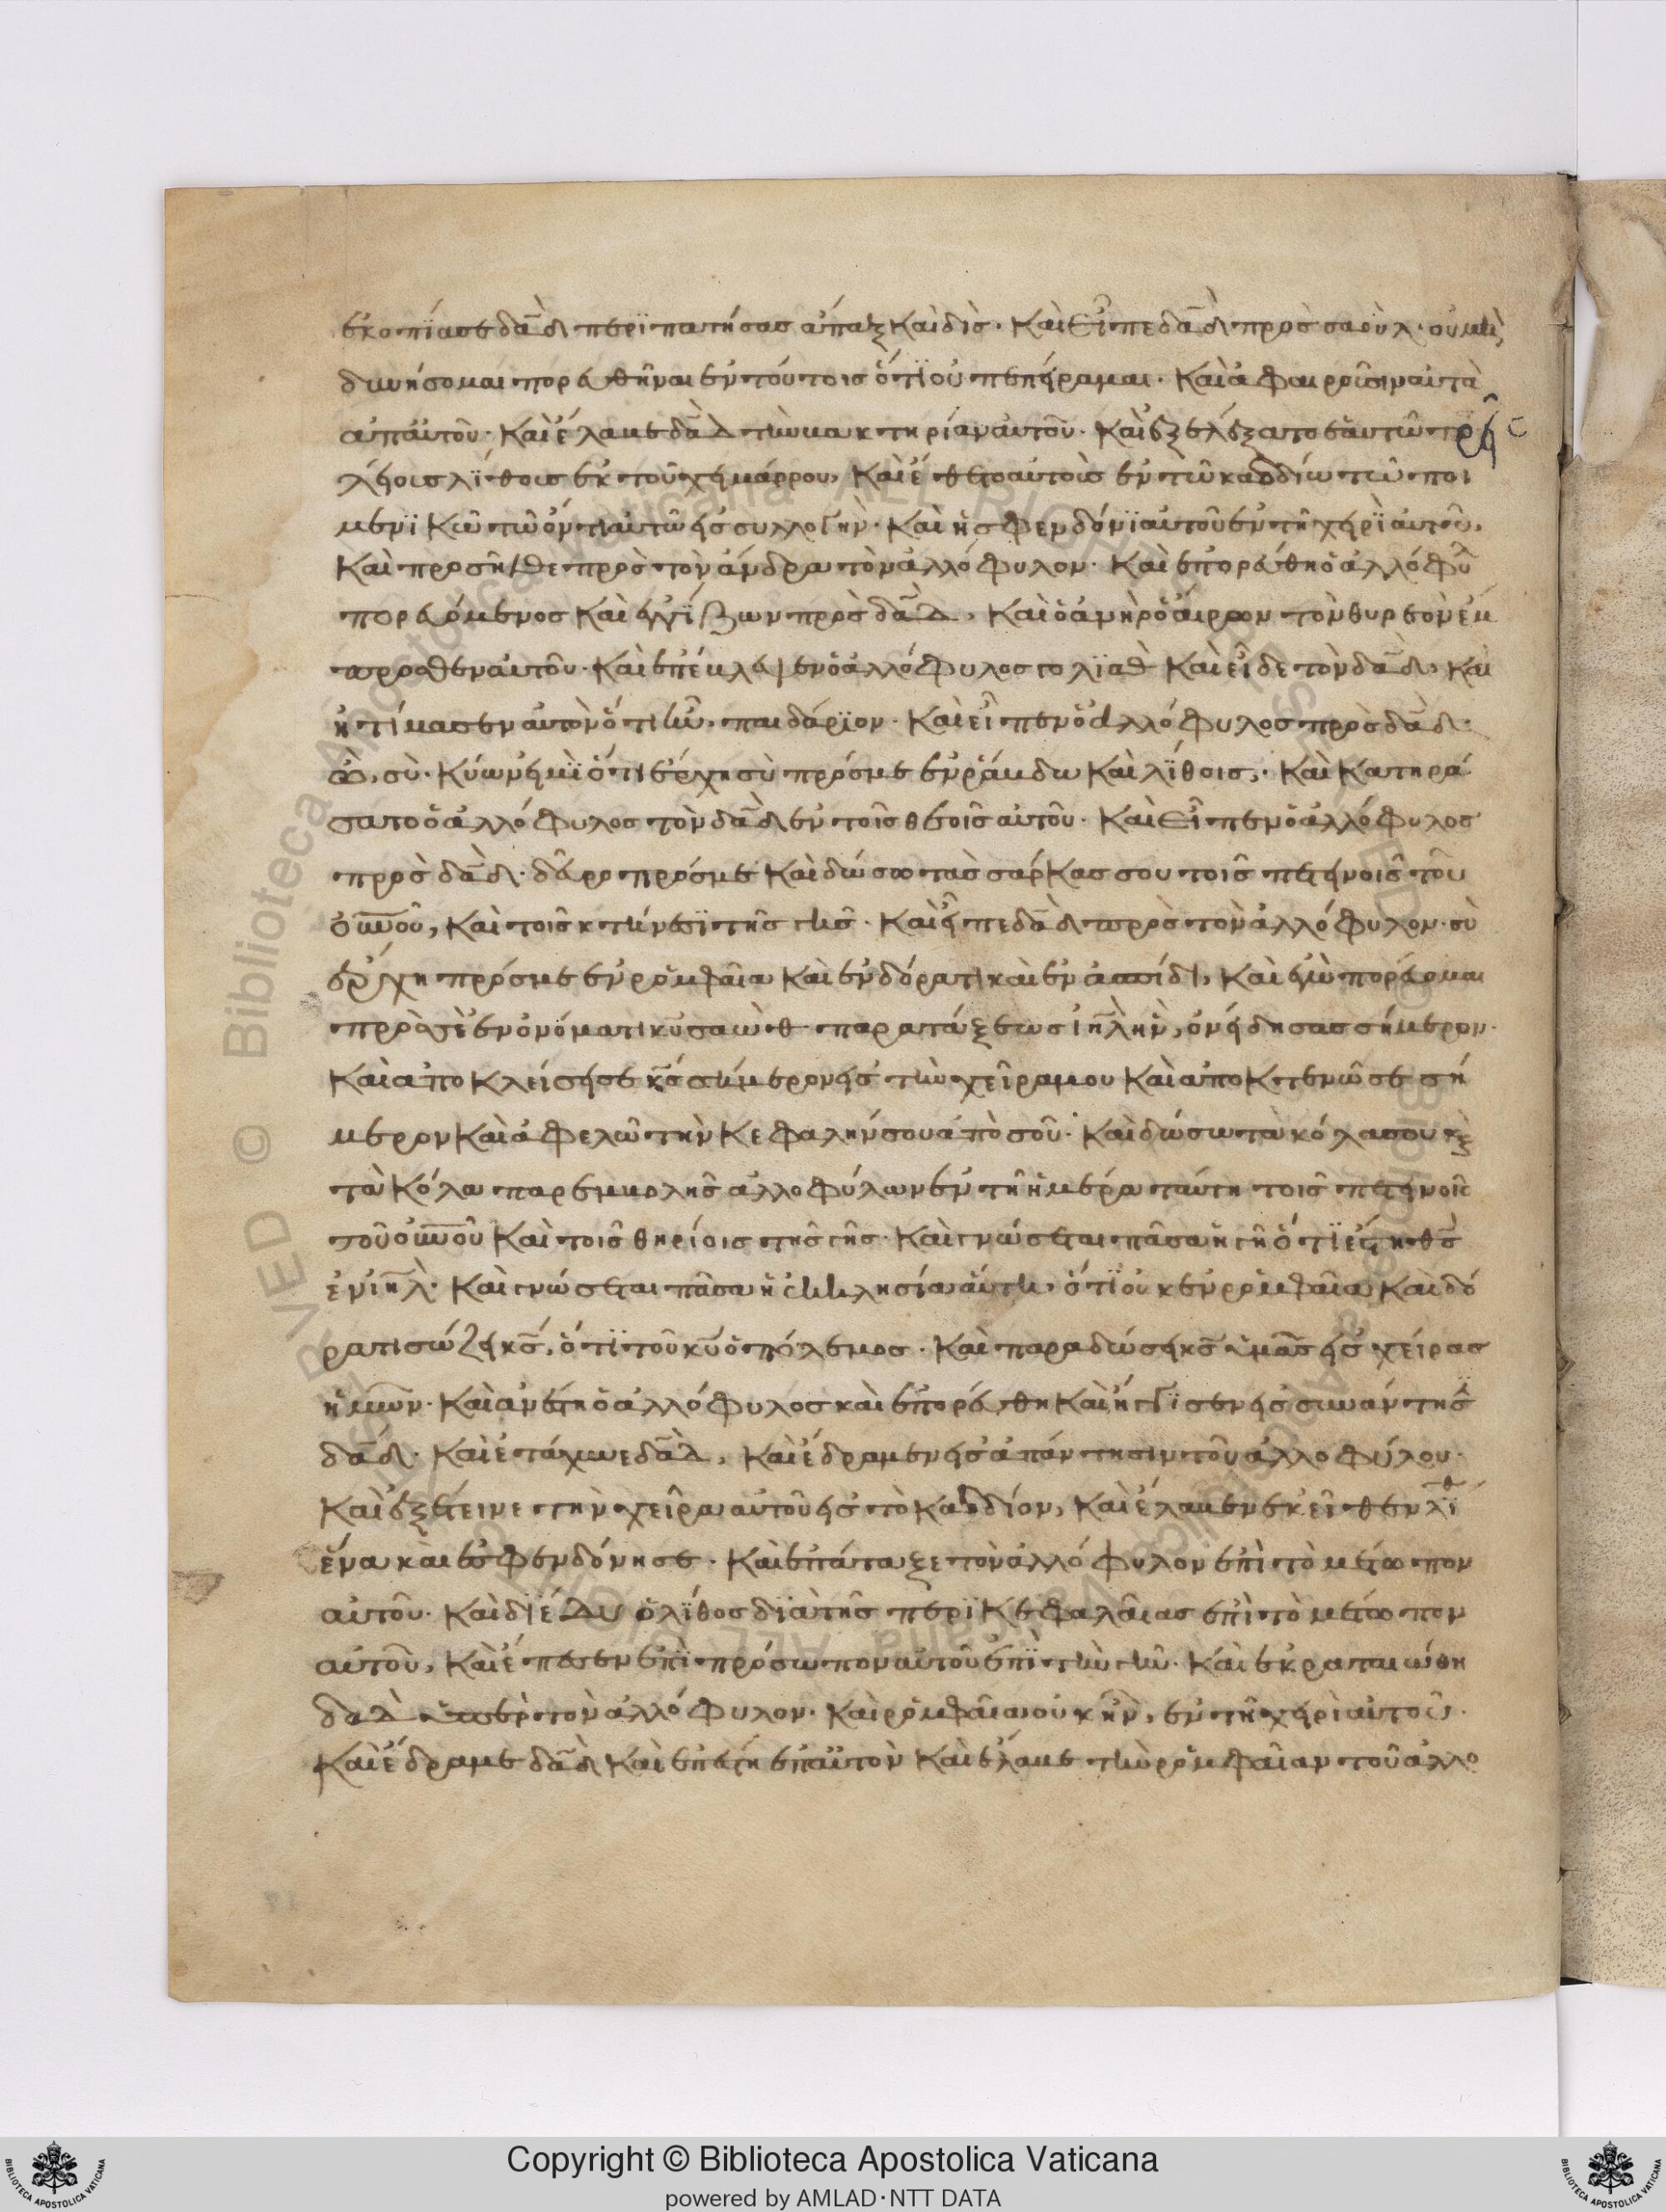 ἐκοπίασε δα̅δ̅ περϊπατήσας ἅπαξ καὶ δίς· καὶ εἶπε δα̅δ̅ πρὸς σαοὺλ· οὐ μὴ
δυνήσομαι πορευθῆναι ἐν τούτοις ὅτϊ οὐ πεπείραμαι· καὶ ἀφαιροῦσιν αὐτὰ
ἀπ αὐτοῦ· καὶ ἔλαβε δα̅δ̅ τὴν βακτηρίαν αὐτοῦ· καὶ ἐξελέξατο ἑαυτῶ
λείους λϊθους ἐκ τοῦ χειμάρρου, καὶ ἔθετο αὐτοὺς ἐν τῶ καδδίω τῶ ποι
μενϊκῶ τῶ ὄντι αὐτῶ εἰς συλλογὴν· καὶ ἡ σφενδόνϊ αὐτοῦ ἐν τῆ χειρῒ αὐτοῦ,
καὶ προσῆλθε πρὸς τὸν ἄνδρα τὸν ἀλλόφυλον· καὶ ἐπορεύθη ὁ ἀλλόφυ
πορευόμενος καὶ ἐγγΐζων πρὸς δα̅δ̅, καὶ ὁ ἀνὴρ ὁ αἴρων τὸν θυρεὸν ἔμ
προσθεν αὐτοῦ· καὶ ἐπέβλεψεν ὁ ἀλλόφυλος γολϊαθ καὶ εἶδε τὸν δα̅δ̅, καὶ
ἠτίμασεν αὐτὸν ὅτι ἦν παιδάρϊον· καὶ εἶπεν ὁ ἀλλόφυλος πρὸς δα̅δ̅·
σὺ· κύων εἰμὶ ὅτι ἔρχη σὺ πρός με ἐν ῥάβδω καὶ λΐθοις,· καὶ κατηρά
σατο ὁ ἀλλόφυλος τὸν δα̅δ̅ ἐν τοῖς θεοῖς αὐτοῦ· καὶ εἶπεν ὁ ἀλλόφυλος
πρὸς δα̅δ̅· δεῦρο πρός με καὶ δώσω τὰς σάρκας σου τοῖς πετεινοῖς τοῦ
ου̅νοῦ, καὶ τοῖς κτήνεσϊ τῆς γῆς· καὶ εἶπε δα̅δ̅ πρὸς τὸν ἀλλόφυλον· σὺ
ἔρχη πρός με ἐν ρομφαία καὶ ἐν δόρατι καὶ ἐν ἀσπίδι, καὶ ἐγὼ πορεύομαι
πρὸς σὲ ἐν ὀνόματι κυ̅ σαβαὼθ παρατάξεως ἰη̅λ ἣν, ὀνείδησας σήμερον·
καὶ ἀποκλείσει σε κ̅ς σήμερον εἰς τὴν χεῖρα μου καὶ ἀποκτενῶ σε σή
μερον καὶ ἀφελῶ τὴν κεφαλήν σου ἀπὸ σοῦ· καὶ δώσω τὰ κόλα σου καὶ
τὰ κόλα παρεμβολῆς ἀλλοφύλων ἐν τῆ ἡμέρα ταύτη τοῖς πετεινοῖς
τοῦ ου̅νοῦ καὶ τοῖς θηρίοις τῆς γῆς· καὶ γνώσεται πᾶσα ἡ γῆ ὅτϊ ἔστη θ̅ς
ἐν ἰη̅λ· καὶ γνώσεται πᾶσα ἡ ἐκκλησία αὕτη, ὅτϊ οὐκ ἐν ρομφαία καὶ δό
ρατι σώζει κ̅ς, ὅτϊ τοῦ κυ̅ ὁ πόλεμος· καὶ παραδώσει κ̅ς ὑμᾶς εἰς χείρας
ἡμῶν· καὶ ἀνέστη ὁ ἀλλόφυλος καὶ ἐπορεύθη καὶ ἤγγϊσεν εἰς συνάντησϊ
δα̅δ̅· καὶ ἐτάχυνε δα̅δ̅, καὶ ἔδραμεν εἰς ἀπάντησιν τοῦ ἀλλοφύλου·
καὶ ἐξέτεινε τὴν χεῖρα αὐτοῦ εἰς τὸ καδδίον, καὶ ἔλαβεν ἐκεῖθεν λΐθ
ἕνα καὶ ἐσφενδόνησε· καὶ ἐπάταξε τὸν ἀλλόφυλον ἐπὶ τὸ μέτωπον
αὐτοῦ· καὶ διέδυ ὁ λίθος δϊὰ τῆς περϊκεφαλαίας ἐπὶ τὸ μέτωπον
αὐτοῦ, καὶ ἔπεσεν ἐπῒ πρόσωπον αὐτοῦ ἐπῒ τὴν γῆν· καὶ ἐκραταιώθη
δα̅δ̅ ὑπὲρ τὸν ἀλλόφυλον· καὶ ρομφαία οὐκ ἦν, ἐν τῆ χειρὶ αὐτοῦ·
καὶ ἔδραμε δα̅δ̅ καὶ ἐπέστη ἐπ αὐτὸν καὶ ἔλαβε τὴν ρομφαίαν τοῦ ἀλλο
Copyright © Biblioteca Apostolica Vaticana
powered by AMLAD·NTT DATA